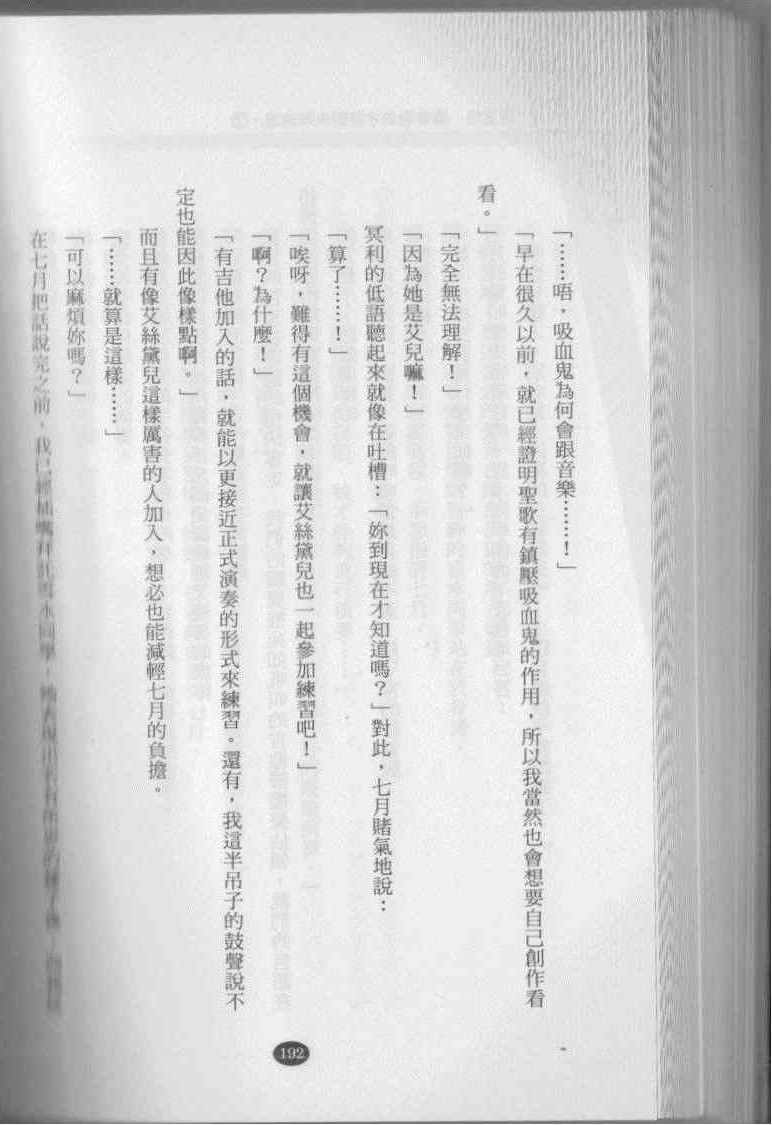 「……唔，吸血鬼為何會跟音樂……！」
「早在很久以前，就已經證明聖歌有鎮壓吸血鬼的作用，所以我當然也會想要自己創作看
看。」
「完全無法理解！」
「因為她是艾兒嘛！」
冥利的低語聽起來就像在吐槽：「妳到現在才知道嗎？」對此，七月賭氣地說：
「算了……！」
「唉呀，難得有這個機會，就讓艾絲黛兒也一起參加練習吧！」
「啊？為什麼！」
「有吉他加入的話，就能以更接近正式演奏的形式來練習。還有，我這半吊子的鼓聲說不
定也能因此像樣點啊。」
而且有像艾絲黛兒這樣厲害的人加入，想必也能減輕七月的負擔。
「……就算是這樣……」
「可以麻煩妳嗎？」
在七月把話說完之前，我已經插嘴拜託
192